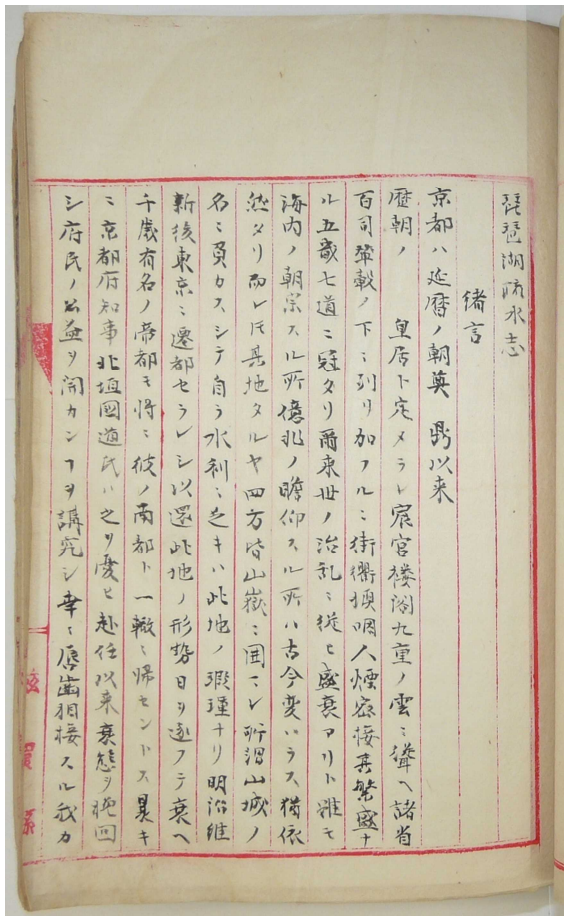 琵琶湖疏水志
緒言
京都ハ延暦ノ朝奠鼎以来
歴朝ノ　皇居ト定メラレ宸宮楼閣九重ノ雲ニ聳ヘ諸省
百司輦轂ノ下ニ列リ加フルニ街衢横咽人煙密接其繁盛ナ
ル五畿七道ニ冠タリ爾来世ノ治乱ニ従ヒ盛衰アリト雖モ
海内ノ朝宗スル所億兆ノ瞻仰スル所ハ古今変ハラス猶依
然タリ而レ𪜈其地タルヤ四方皆山嶽ニ囲マレ所謂山城ノ
名ニ負カスシテ自ラ水利ニ乏キハ此地ノ瑕瑾ナリ明治維
新後東京ニ遷都セラレシ以還此地ノ形勢日ヲ逐フテ衰ヘ
千歳有名ノ帝都モ将ニ彼ノ南都ト一轍ニ帰セントス曩キ
ニ京都府知事北垣國道氏ハ之ヲ憂ヒ赴任以来衰態ヲ挽回
シ府民ノ公益ヲ開カンヿヲ講究シ幸ニ唇歯相接スル我カ